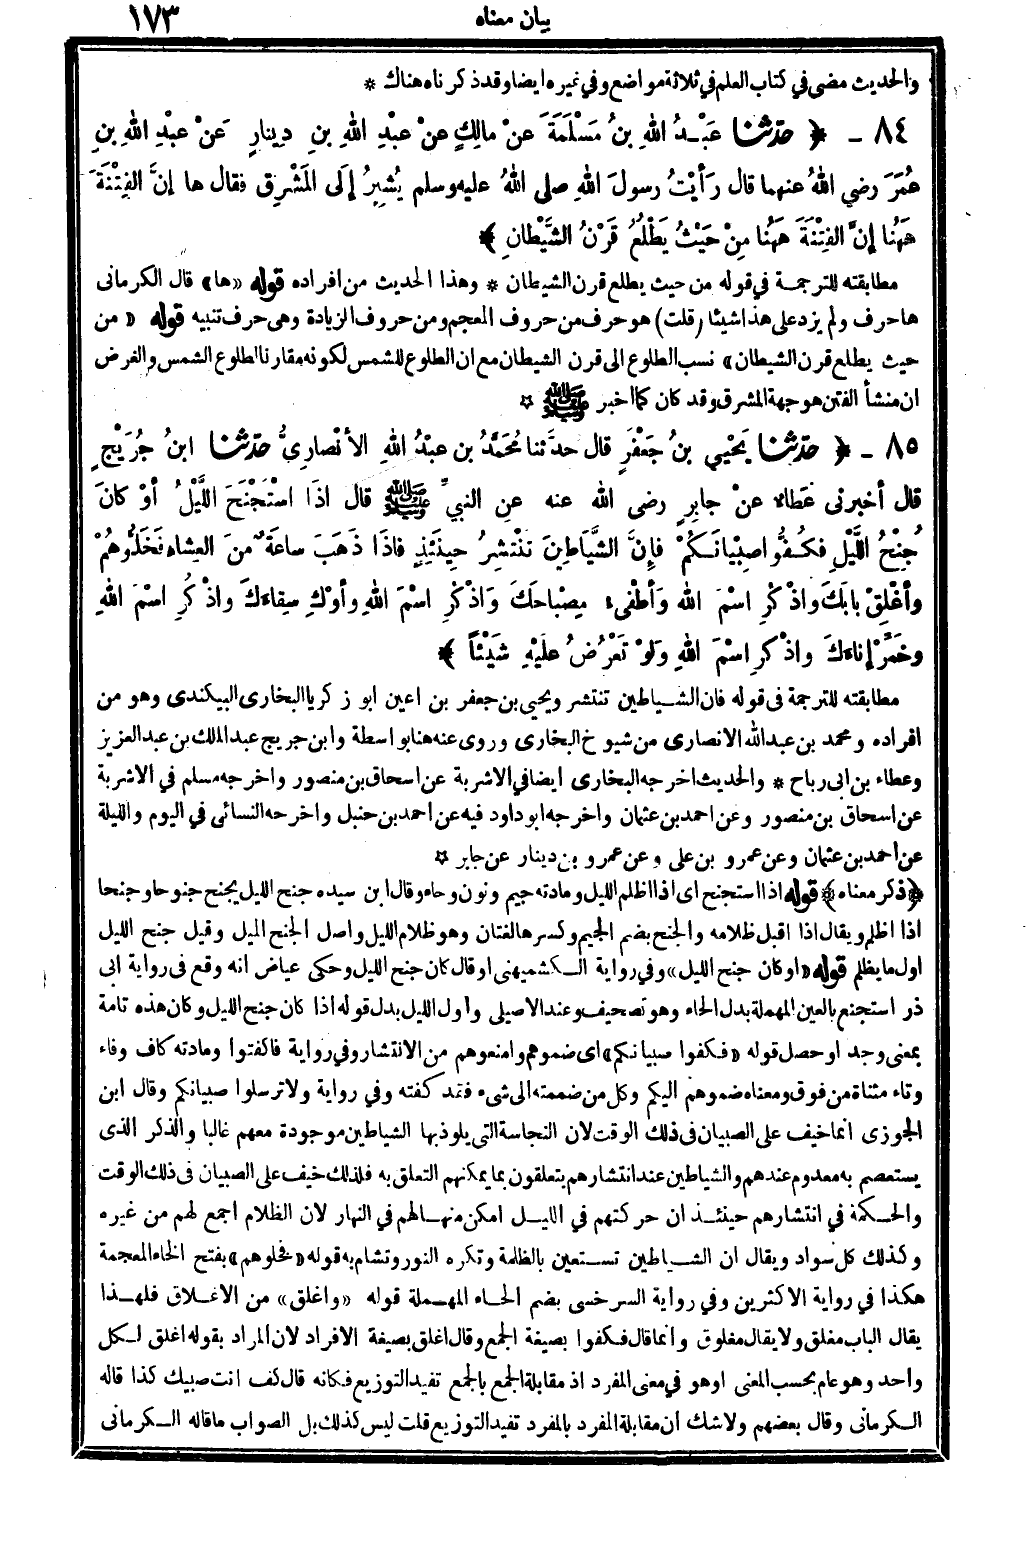 بيان معناه ١٧٣
والحديث مضى في كتاب العلم في ثلاثة مواضع وفي غيره ايضا وقد ذكرناه هناك *
٨٤ - ﴿ حدّثنا عَبْدُ اللهِ بنُ مَسْلَمَةَ عنْ مالِكٍ عنْ عبْدِ اللهِ بنِ دِينارٍ عنْ عبْدِ اللهِ بنِ
عُمَرَ رضي اللهُ عنهما قال رَأيْتُ رسولَ اللهِ صلى اللهُ عليه وسلم يُشِيرُ إلَى المَشْرِقِ فقال ها إنَّ الفِتْنَةَ
هَهُنا إنَّ الفِتْنَةَ هَهُنا مِنْ حَيْثُ يَطْلُعُ قَرْنُ الشَّيْطانِ ﴾
مطابقته للترجمة في قوله من حيث يطلع قرن الشيطان * وهذا الحديث من افراده قوله «ها» قال الكرمانى
ها حرف ولم يزد على هذا شيئا (قلت) هو حرف من حروف المعجم ومن حروف الزيادة وهى حرف تنبيه قوله «من
حيث يطلع قرن الشيطان» نسب الطلوع الى قرن الشيطان مع ان الطلوع للشمس لكونه مقارنا لطلوع الشمس والغرض
ان منشأ الفتن هو جهة المشرق وقد كان كما اخبر ﷺ ☆
٨٥ - ﴿ حدّثنا يَحْيي بنُ جَعْفَرٍ قال حدَّثنا مُحَمَّدُ بن عبْدُ اللهِ الأنْصارِيُّ حدّثنا ابنُ جُرَيْجٍ
قال أخبرنى عَطاءٌ عنْ جابِرٍ رضى الله عنه عنِ النبيِّ ﷺ قال اذَا اسْتَجْنَحَ اللَّيْلُ أوْ كانَ
جُنْحُ اللَّيْلِ فكُفُّوا صِبْيانَكُمْ فإِنَّ الشَّيَاطِينَ تَنْتَشِرُ حِينَئِذٍ فاذَا ذَهَبَ ساعَةٌ منَ العِشاءِ فَخَلُّوهُمْ
وأغْلِقْ بابَكَ واذْكُرِ اسْمَ الله وَأطْفِىءْ مِصْباحَكَ وَاذْكُرِ اسْمَ اللهِ وأوْكِ سِقاءَكَ واذْكُرِ اسْمَ اللهِ
وخَمِّرْ إناءَكَ واذْكُرِ اسْمَ اللهِ ولَوْ تَعْرُضُ علَيْهِ شَيْئاً ﴾
مطابقته للترجمة فى قوله فان الشياطين تنتشر ويحيى بن جعفر بن اعين ابو زكريا البخارى البيكندى وهو من
افراده ومحمد بن عبدالله الانصارى من شيوخ البخارى وروى عنه هنا بواسطة وابن جريج عبد الملك بن عبد العزيز
وعطاء بن ابى رباح * والحديث اخرجه البخارى ايضا في الاشربة عن اسحاق بن منصور واخرجه مسلم في الاشربة
عن اسحاق بن منصور وعن احمد بن عثمان واخرجه ابو داود فيه عن احمد بن حنبل واخرجه النسائى في اليوم والليلة
عن احمد بن عثمان وعن عمرو بن على وعن عمرو بن دينار عن جابر ☆
﴿ذكر معناه﴾ قوله اذا استجنح اى اذا اظلم الليل ومادته جيم ونون وحاء وقال ابن سيده جنح الليل يجنح جنوحا وجنحا
اذا اظلم ويقال اذا اقبل ظلامه والجنح بضم الجيم وكسرها لغتان وهو ظلام الليل واصل الجنح الميل وقيل جنح الليل
اول ما يظلم قوله «او كان جنح الليل» وفي رواية الكشميهنى او قال كان جنح الليل وحكى عياض انه وقع فى رواية ابى
ذر استجنع بالعين المهملة بدل الحاء وهو تصحيف وعند الاصيلى واول الليل بدل قوله اذا كان جنح الليل وكان هذه تامة
بمعنى وجد او حصل قوله «فكفوا صبيانكم» اى ضموهم وامنعوهم من الانتشار وفي رواية فاكفتوا ومادته كاف وفاء
وتاء مثناة من فوق ومعناه ضموهم اليكم وكل من ضممته الى شىء فقد كفته وفي رواية ولا ترسلوا صبيانكم وقال ابن
الجوزى انما خيف على الصبيان فى ذلك الوقت لان النجاسة التي يلوذ بها الشياطين موجودة معهم غالبا والذكر الذى
يستعصم به معدوم عندهم والشياطين عند انتشارهم يتعلقون بما يمكنهم التعلق به فلذلك خيف على الصبيان فى ذلك الوقت
والحكمة في انتشارهم حينئذ ان حركتهم في الليل امكن منها لهم في النهار لان الظلام اجمع لهم من غيره
وكذلك كل سواد ويقال ان الشياطين تستعين بالظلمة وتكره النور وتشأم به قوله «فخلوهم» بفتح الخاء المعجمة
هكذا في رواية الاكثرين وفي رواية السرخسى بضم الحاء المهملة قوله «واغلق» من الاغلاق فلهذا
يقال الباب مغلق ولا يقال مغلوق وانما قال فكفوا بصيغة الجمع وقال اغلق بصيغة الافراد لان المراد بقوله اغلق لكل
واحد وهو عام بحسب المعنى اوهو في معنى المفرد اذ مقابلة الجمع بالجمع تفيد التوزيع فكانه قال كف انت صبيك كذا قاله
الكرمانى وقال بعضهم ولا شك ان مقابلة المفرد بالمفرد تفيد التوزيع قلت ليس كذلك بل الصواب ما قاله الكرمانى